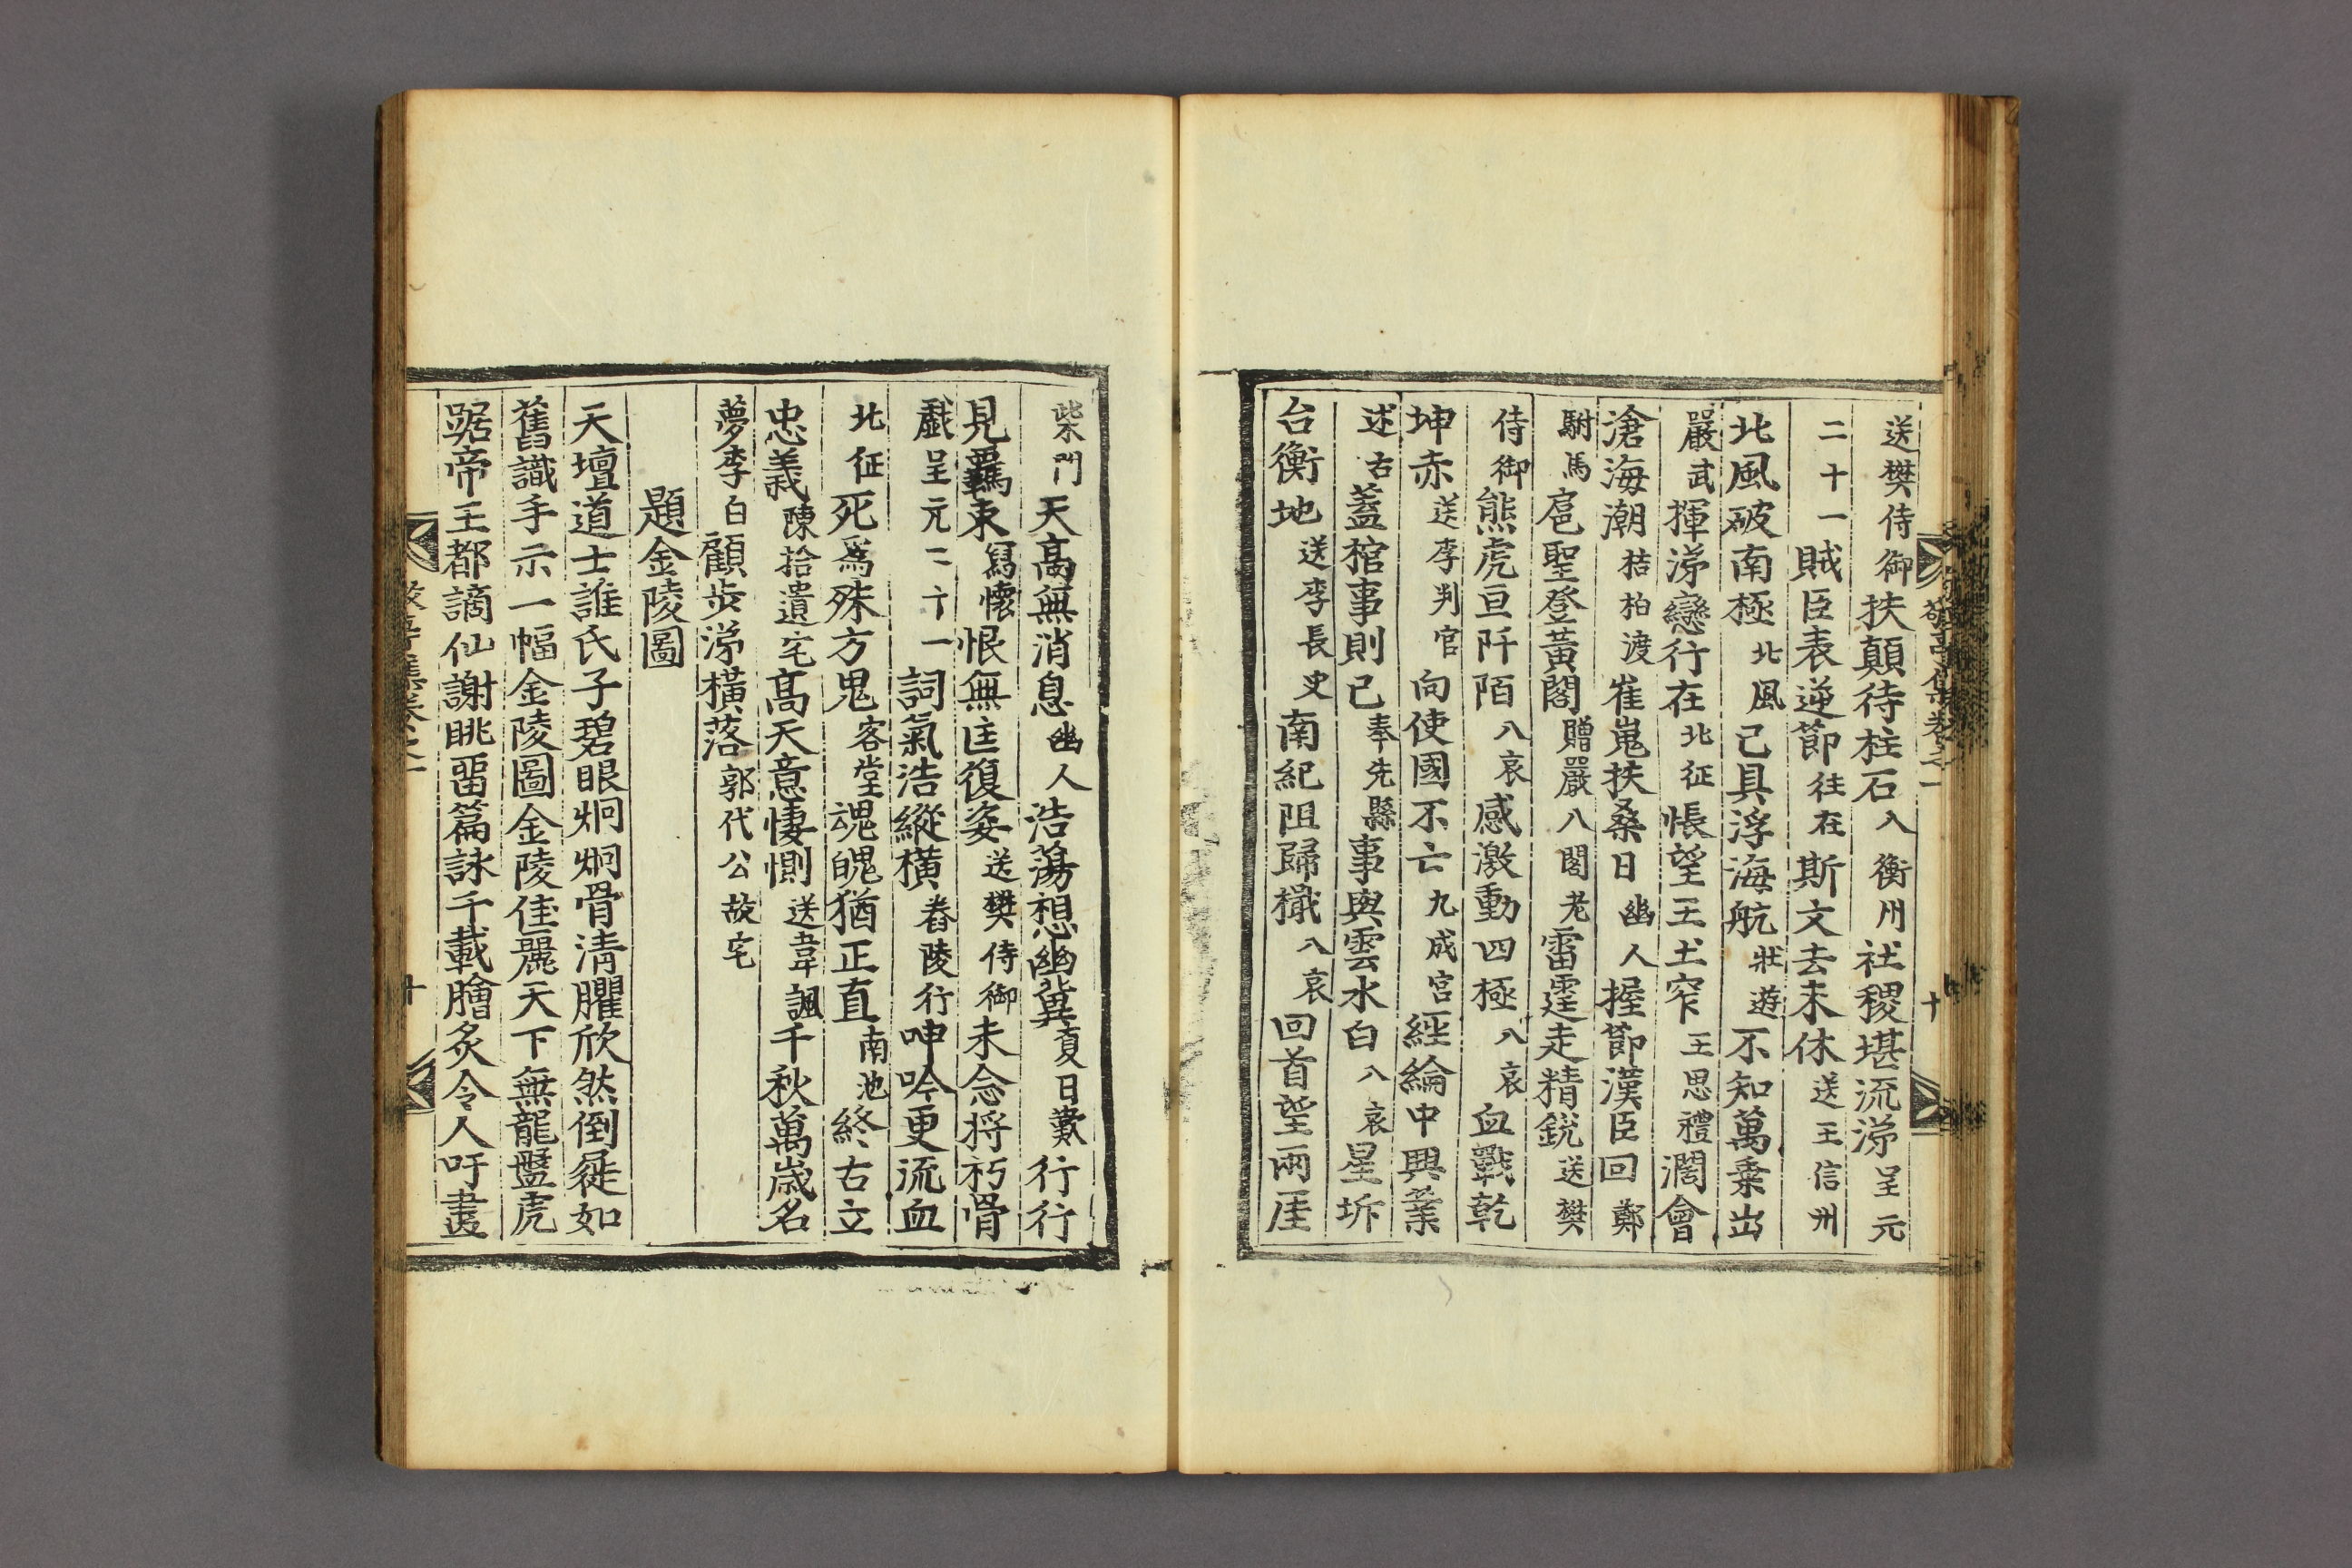 送樊侍御扶顛待柱石入衡州社稷堪流涕呈元
二十一賊臣表逆節往在斯文去未休送王信州
北風破南極北風已具浮海航壯遊不知萬乗出
嚴武揮涕戀行在北征悵望王土窄王思禮濶會
滄海潮桔柏渡崔嵬扶桑日幽人握節漢臣回鄭
駙馬扈聖登黃閣贈嚴八閣老雷霆走精銳送樊
侍御熊虎亘阡陌八哀感激動四極八哀血戰乾
坤赤送李判官向使國不亡九成宮經綸中興業
述古蓋棺事則已奉先縣事與雲水白八哀星坼
台衡地送李長史南紀阻歸楫八哀回首望兩厓
柴門天高無消息幽人浩蕩想幽冀夏日歎行行
見羈束寫懷恨無匡復姿送樊侍御未念將朽骨
戲呈元二十一詞氣浩縱橫舂陵行呻吟更流血
北征死爲殊方鬼客堂魂魄猶正直南池終古立
忠義陳拾遺宅高天意悽惻送韋諷千秋萬歲名
夢李白顧步涕橫落郭代公故宅
題金陵圖
天壇道士誰氏子碧眼炯炯骨淸臞欣然倒屣如
舊識手示一幅金陵圖金陵佳麗天下無龍盤虎
踞帝王都謫仙謝眺畱篇詠千載膾炙令人吁畫